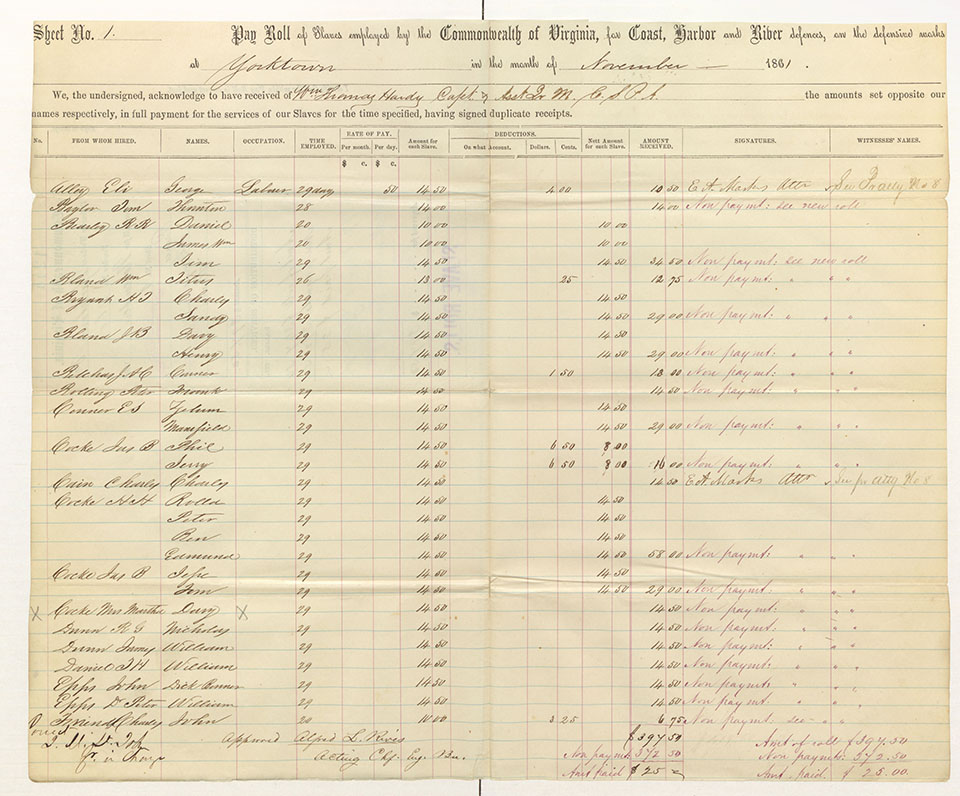 Sheet No. 1. Pay Roll of Slaves employed by the Commonwealth of Virginia, for Coast, Harbor and River defences, on the defensive works
at Yorktown in the month of November 1861.
We, the undersigned, acknowledge to have received of Wm Thomas Hardy Capt & Asst Qr M. C.S.P.A. the amounts set opposite our
names respectively, in full payment for the services of our Slaves for the time specified, having signed duplicate receipts.
No. FROM WHOM HIRED. NAMES. OCCUPATION. TIME EMPLOYED. RATE OF PAY. Per month. Per day. Amount for each Slave. DEDUCTIONS. On what Account. Dollars. Cents. Nett Amount for each Slave. AMOUNT RECEIVED. SIGNATURES. WITNESSES' NAMES.
$ c. $ c.
Alley Eli George Laborer 29 days 50 14 50 4 00 10 50 E A Marks Atto
Jim Thornton 28 14 00 14 00 Non paymt: see new roll
R R Daniel 20 10 00 10 00
James Wm 20 10 00 10 00
Jim 29 14 50 14 50 34 50 Non paymt: see new roll
Bland Wm Peter 26 13 00 25 12 75 Non paymt: " " "
Bryant H J Charles 29 14 50 14 50
Sandy 29 14 50 14 50 29 00 Non paymt: " " "
Bland J B Davy 29 14 50 14 50
Henry 29 14 50 14 50 29 00 Non paymt: " " "
29 14 50 1 50 13 00 Non paymt: " " "
Frank 29 14 50 14 50 Non paymt: " " "
Conner E S 29 14 50 14 50
Mansfield 29 14 50 14 50 29 00 Non paymt: " " "
Cocke Jas B Phil 29 14 50 6 50 8 00
Jerry 29 14 50 6 50 8 00 16 00 Non paymt: " " "
Cain Charles Charles 29 14 50 14 50 E A Marks Atto
Cocke H H Rolla 29 14 50 14 50
Peter 29 14 50 14 50
Ben 29 14 50 14 50
Edmund 29 14 50 14 50 58 00 Non paymt: " " "
Cocke Jas B 29 14 50 14 50
Tom 29 14 50 14 50 29 00 Non paymt: " " "
X Cocke Mrs Martha Davy X 29 14 50 14 50 Non paymt: " " "
Dunn Nicholas 29 14 50 14 50 Non paymt. " " "
Dunn William 29 14 50 14 50 Non paymt: " " "
Daniel William 29 14 50 14 50 Non paymt: " " "
Epps John Dick Conner 29 14 50 14 50 Non paymt: " " "
Epps Dr Peter William 29 14 50 14 50 Non paymt: " " "
Friend Charles John 20 10 00 3 25 6 75 Non paymt: see " "
Approved Alfred L. Rives $397 50 Amt of roll $397.50
Acting Chf. Eng. Non paymt 372 50 Non paymt: 372.50
Amt paid $25 Amt. paid. $25.00.